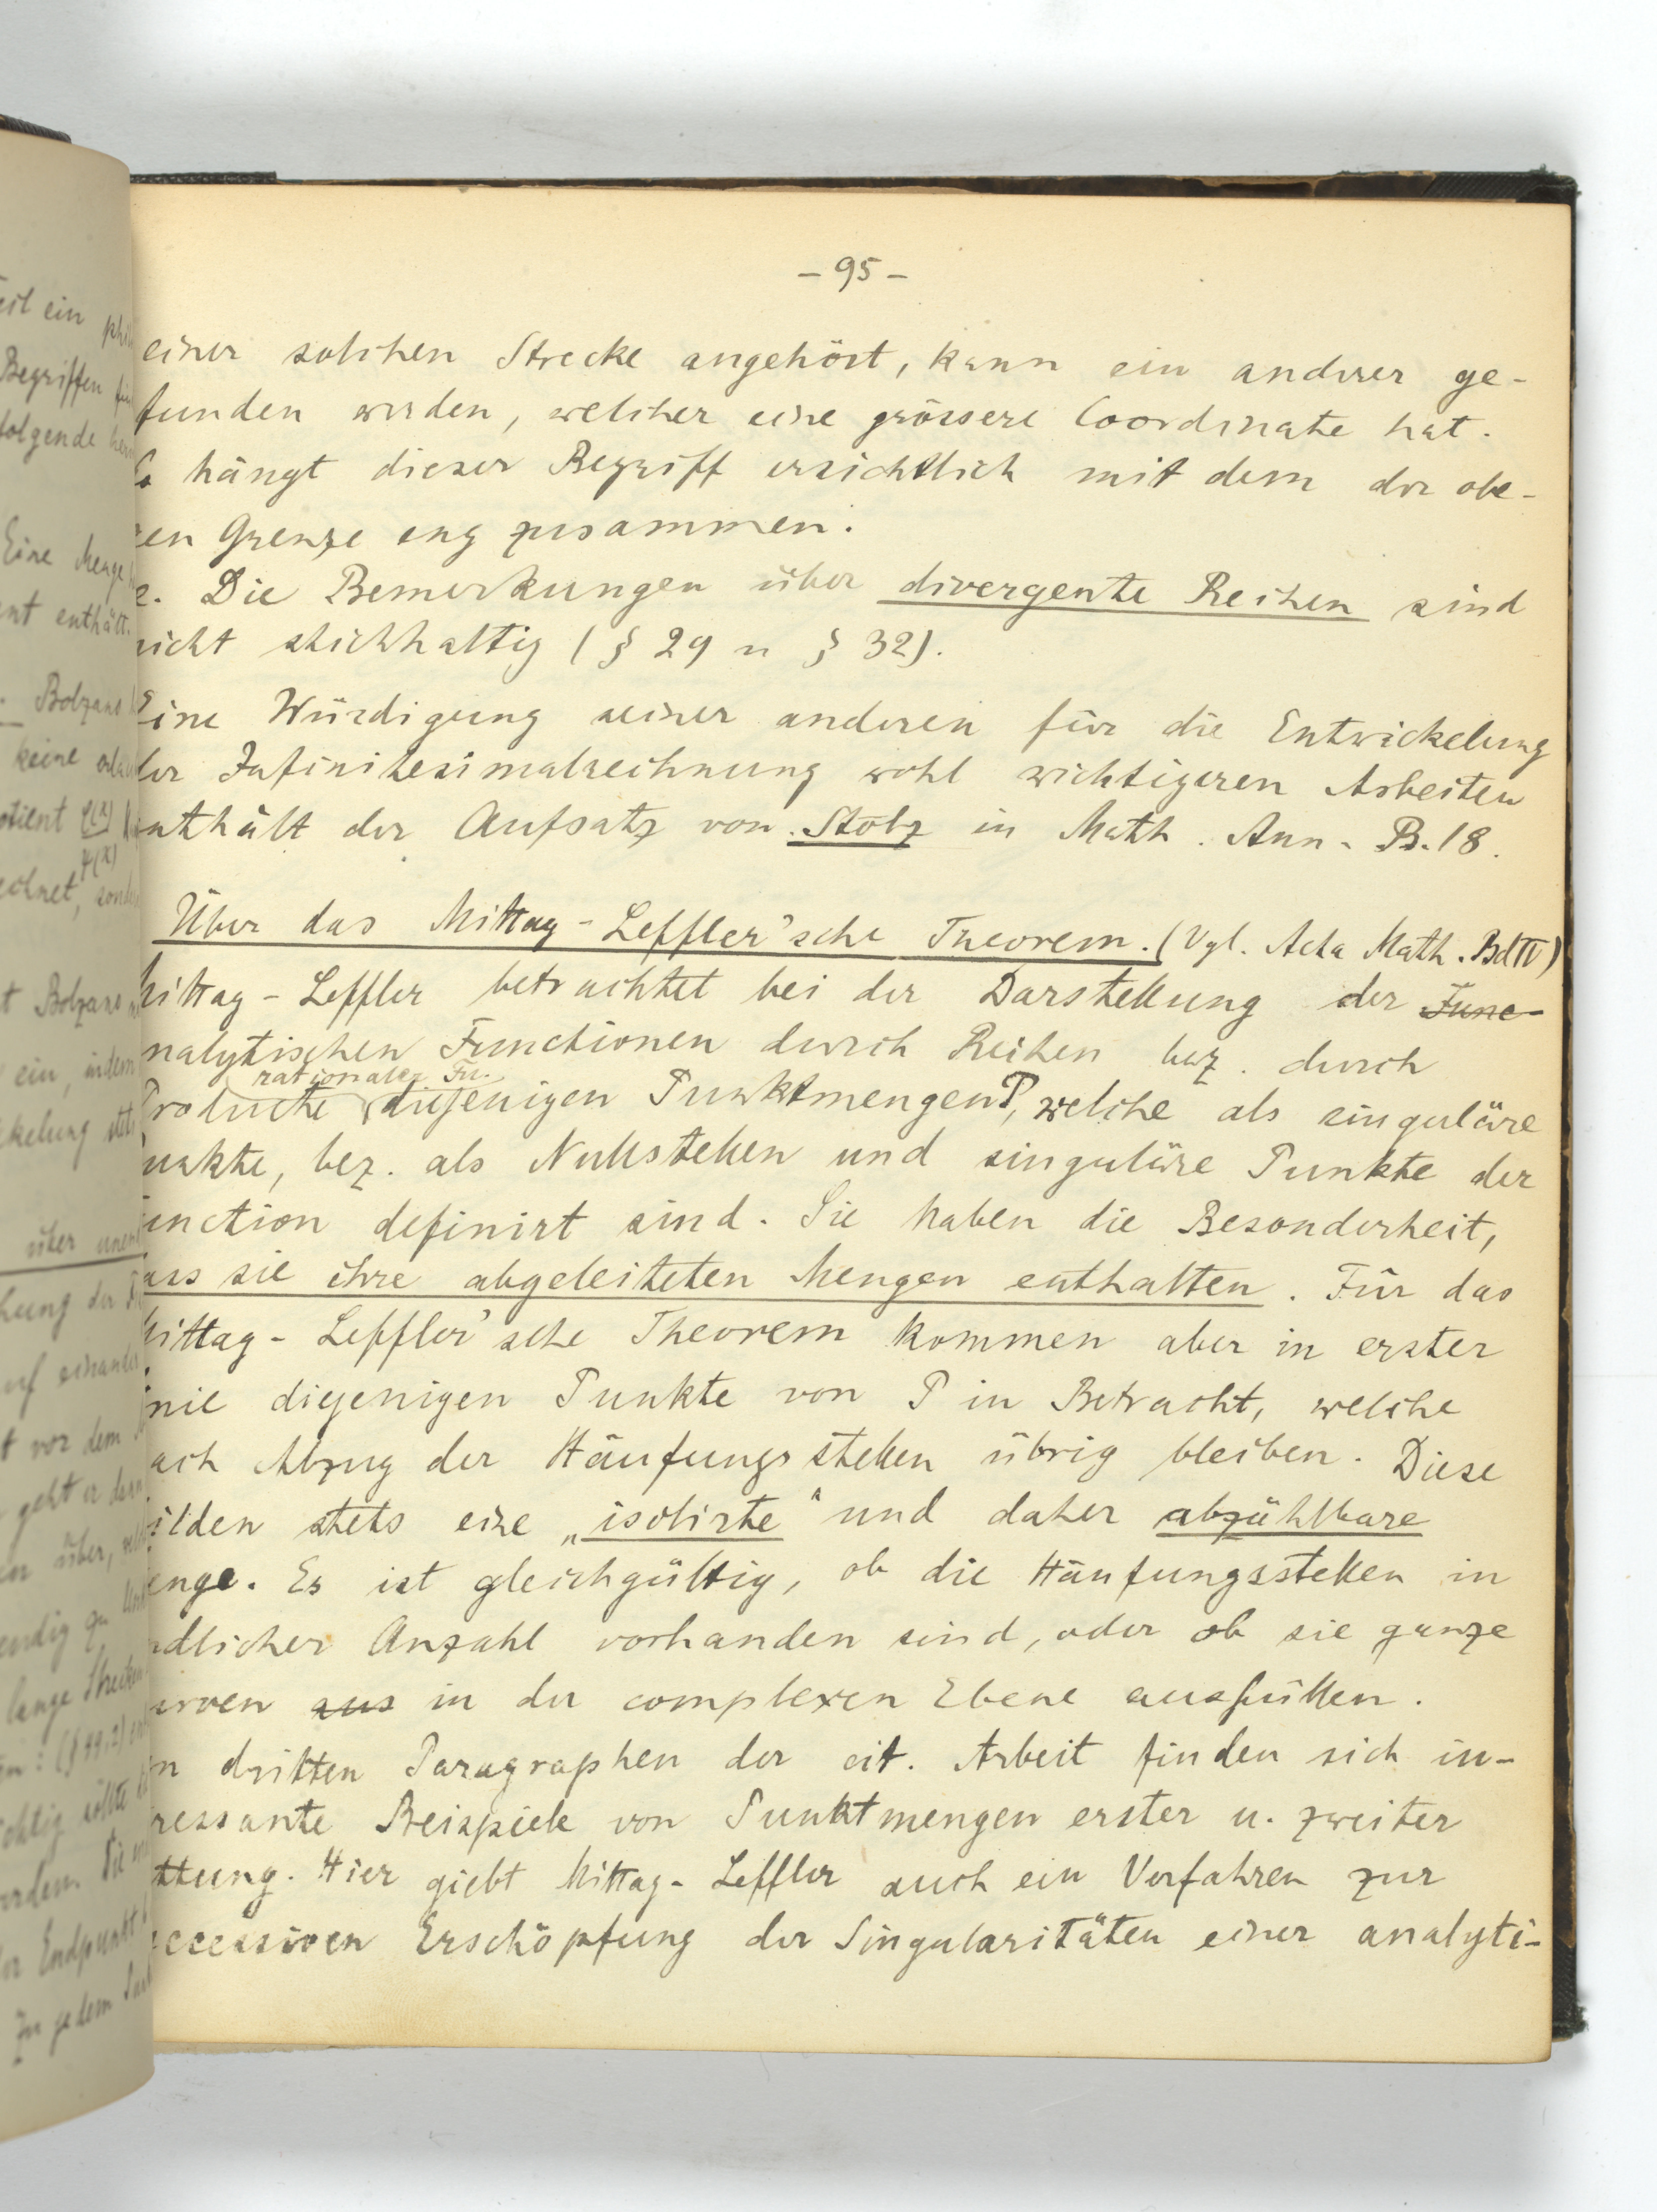 - 95 -
einer solchen Strecke angehört, kann ein anderer ge-
funden werden, welcher eine grössere Coordinate hat.
hängt dieser Begriff ersichtlich mit dem der obe-
ren Grenze eng zusammen.
2. Die Bemerkungen über divergente Reihen sind
nicht stichhaltig (§ 29 u § 32).
Eine Würdigung seiner anderen für die Entwickelung
der Infinitesimalrechnung wohl wichtigeren Arbeiten
enthält der Aufsatz von Stolz in Math. Ann. B. 18.
Über das Mittag-Leffler'sche Theorem. (Vgl. Acta Math. Bd IV)
Mittag-Leffler betrachtet bei der Darstellung der Func-
analytischen Functionen durch Reihen bez. durch
rationaler Fu.
Producte diejenigen Punktmengen P, welche als singuläre
Punkte, bez. als Nullstellen und singuläre Punkte der
Function definirt sind. Sie haben die Besonderheit,
dass sie ihre abgeleiteten Mengen enthalten. Für das
Mittag-Leffler'sche Theorem kommen aber in erster
Linie diejenigen Punkte von P in Betracht, welche
nach Abzug der Häufungsstellen übrig bleiben. Diese
bilden stets eine „isolirte“ und daher abzählbare
Menge. Es ist gleichgültig, ob die Häufungsstellen in
endlicher Anzahl vorhanden sind, oder ob sie ganze
Curven aus in der complexen Ebene ausfüllen.
Im dritten Paragraphen der cit. Arbeit finden sich in-
teressante Beispiele von Punktmengen erster u. zweiter
Gattung. Hier giebt Mittag-Leffler auch ein Verfahren zur
successiven Erschöpfung der Singularitäten einer analyti-